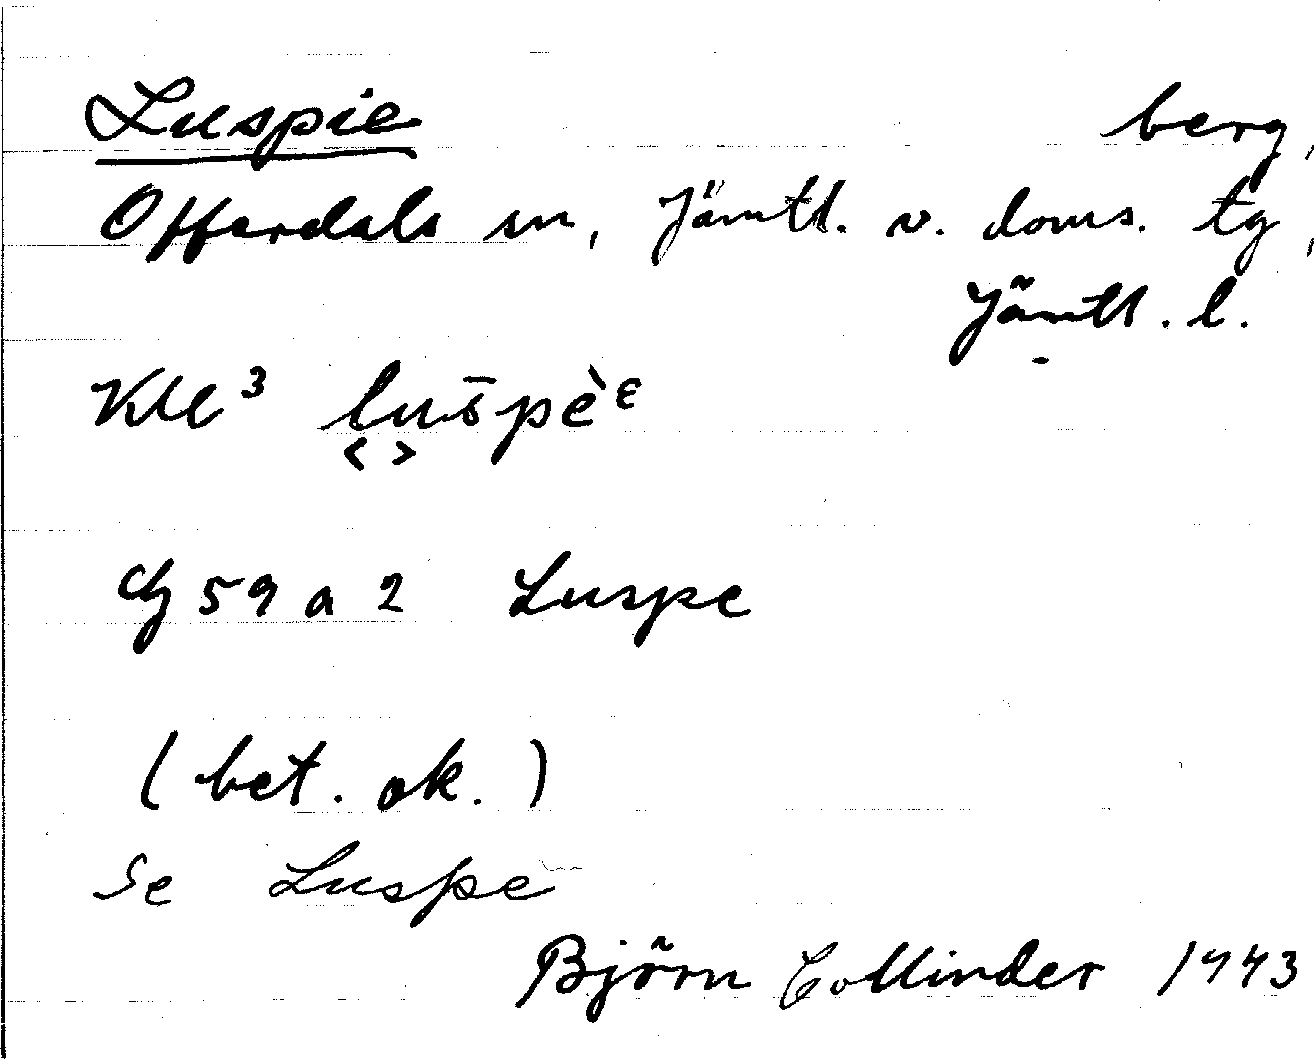 Luspie berg,
Offerdals sn, Jämtl. v. doms. tg,
Jämtl. l.
Kll³ lūs̄pèᵋ
< >
59 a 2 Luspe
(bet. ok.)
Se Luspe
Björn Collinder 1943